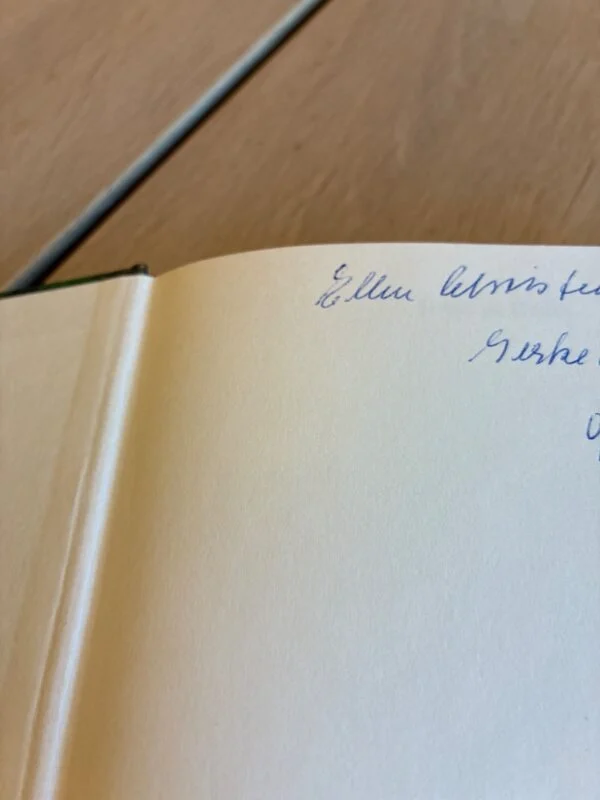 Ellen Christen
Gerke